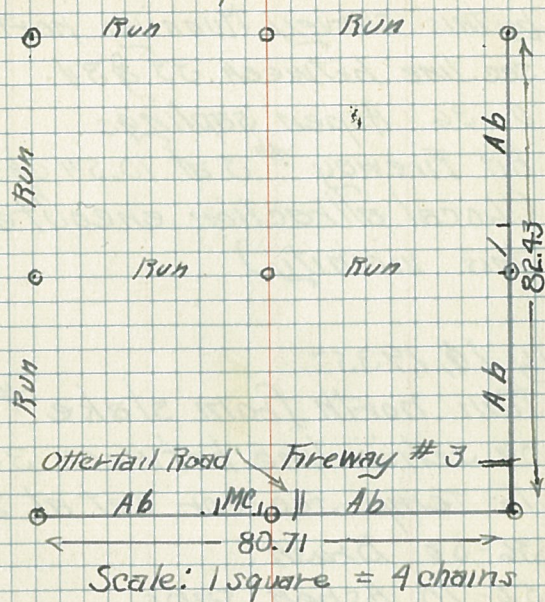 Run Run
Ab
Run
82.43
Run Run
Run
Ab
Ottertail Road Fireway # 3
Ab MC Ab
80.71
Scale: 1 square = 4 chains